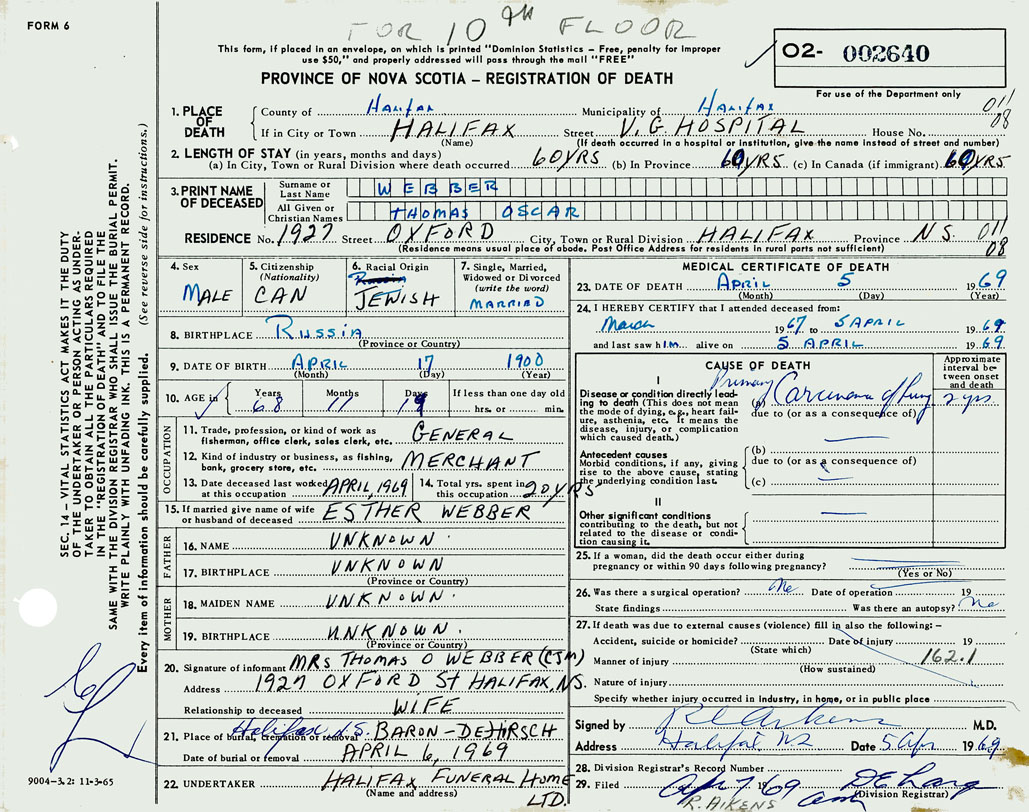 FORM 6
FOR 10TH FLOOR
This form, if placed in an envelope, on which is printed "Dominion Statistics – Free, penalty for improper
use $50," and properly addressed will pass through the mail "FREE"
PROVINCE OF NOVA SCOTIA – REGISTRATION OF DEATH
02- 002640
For use of the Department only
1. PLACE OF DEATH
County of Halifax Municipality of Halifax 011
If in City or Town HALIFAX Street V.G. HOSPITAL House No. 08
(Name) (If death occurred in a hospital or institution, give the name instead of street and number)
2. LENGTH OF STAY (in years, months and days)
(a) In City, Town or Rural Division where death occurred 60 YRS (b) In Province 60 YRS (c) In Canada (if immigrant) 60 YRS
3. PRINT NAME OF DECEASED
Surname or Last Name WEBBER
All Given or Christian Names THOMAS OSCAR
RESIDENCE No. 1927 Street OXFORD City, Town or Rural Division HALIFAX Province N.S. 011
(Residence means usual place of abode. Post Office Address for residents in rural parts not sufficient) 08
4. Sex
MALE
5. Citizenship
(Nationality)
CAN
6. Racial Origin
JEWISH
7. Single, Married,
Widowed or Divorced
(write the word)
MARRIED
8. BIRTHPLACE RUSSIA
(Province or Country)
9. DATE OF BIRTH APRIL 17 1900
(Month) (Day) (Year)
10. AGE in Years Months Days If less than one day old
68 11 19 hrs. or min.
OCCUPATION
11. Trade, profession, or kind of work as
fisherman, office clerk, sales clerk, etc. GENERAL
12. Kind of industry or business, as fishing,
bank, grocery store, etc. MERCHANT
13. Date deceased last worked
at this occupation APRIL, 1969
14. Total yrs. spent in
this occupation 20 YRS
15. If married give name of wife
or husband of deceased ESTHER WEBBER
FATHER
16. NAME UNKNOWN
17. BIRTHPLACE UNKNOWN
(Province or Country)
MOTHER
18. MAIDEN NAME UNKNOWN.
19. BIRTHPLACE UNKNOWN.
(Province or Country)
20. Signature of informant MRS THOMAS O WEBBER (CJM)
Address 1927 OXFORD ST HALIFAX, N.S.
Relationship to deceased WIFE
21. Place of burial, cremation or removal Halifax, N.S. BARON-DEHIRSCH
Date of burial or removal APRIL 6, 1969
22. UNDERTAKER HALIFAX FUNERAL HOME
(Name and address) LTD.
MEDICAL CERTIFICATE OF DEATH
23. DATE OF DEATH APRIL 5 1969
(Month) (Day) (Year)
24. I HEREBY CERTIFY that I attended deceased from:
March 1967 to 5 APRIL 1969
and last saw him alive on 5 APRIL 1969
CAUSE OF DEATH
Approximate
interval be-
tween onset
and death
I
Disease or condition directly lead-
ing to death (This does not mean
the mode of dying, e.g., heart fail-
ure, asthenia, etc. It means the
disease, injury, or complication
which caused death.)
(a) Primary Carcinoma of lung 2 yrs
due to (or as a consequence of)
Antecedent causes
Morbid conditions, if any, giving
rise to the above cause, stating
the underlying condition last.
(b)
due to (or as a consequence of)
(c)
II
Other significant conditions
contributing to the death, but not
related to the disease or condi-
tion causing it.
25. If a woman, did the death occur either during
pregnancy or within 90 days following pregnancy?
(Yes or No)
26. Was there a surgical operation? No Date of operation
State findings Was there an autopsy? No
27. If death was due to external causes (violence) fill in also the following: –
Accident, suicide or homicide? Date of injury 19
(State which)
Manner of injury 162.1
(How sustained)
Nature of injury
Specify whether injury occurred in industry, in home, or in public place
Signed by R L Aikens M.D.
Address Halifax NS Date 5 Apr 1969
28. Division Registrar's Record Number
29. Filed Apr 7 1969
(Division Registrar)
R. AIKENS
SEC. 14 – VITAL STATISTICS ACT MAKES IT THE DUTY
OF THE UNDERTAKER OR PERSON ACTING AS UNDER-
TAKER TO OBTAIN ALL THE PARTICULARS REQUIRED
IN THE "REGISTRATION OF DEATH" AND TO FILE THE
SAME WITH THE DIVISION REGISTRAR WHO SHALL ISSUE THE BURIAL PERMIT.
WRITE PLAINLY WITH UNFADING INK. THIS IS A PERMANENT RECORD.
Every item of information should be carefully supplied. (See reverse side for instructions.)
9004-3.2: 11-3-65